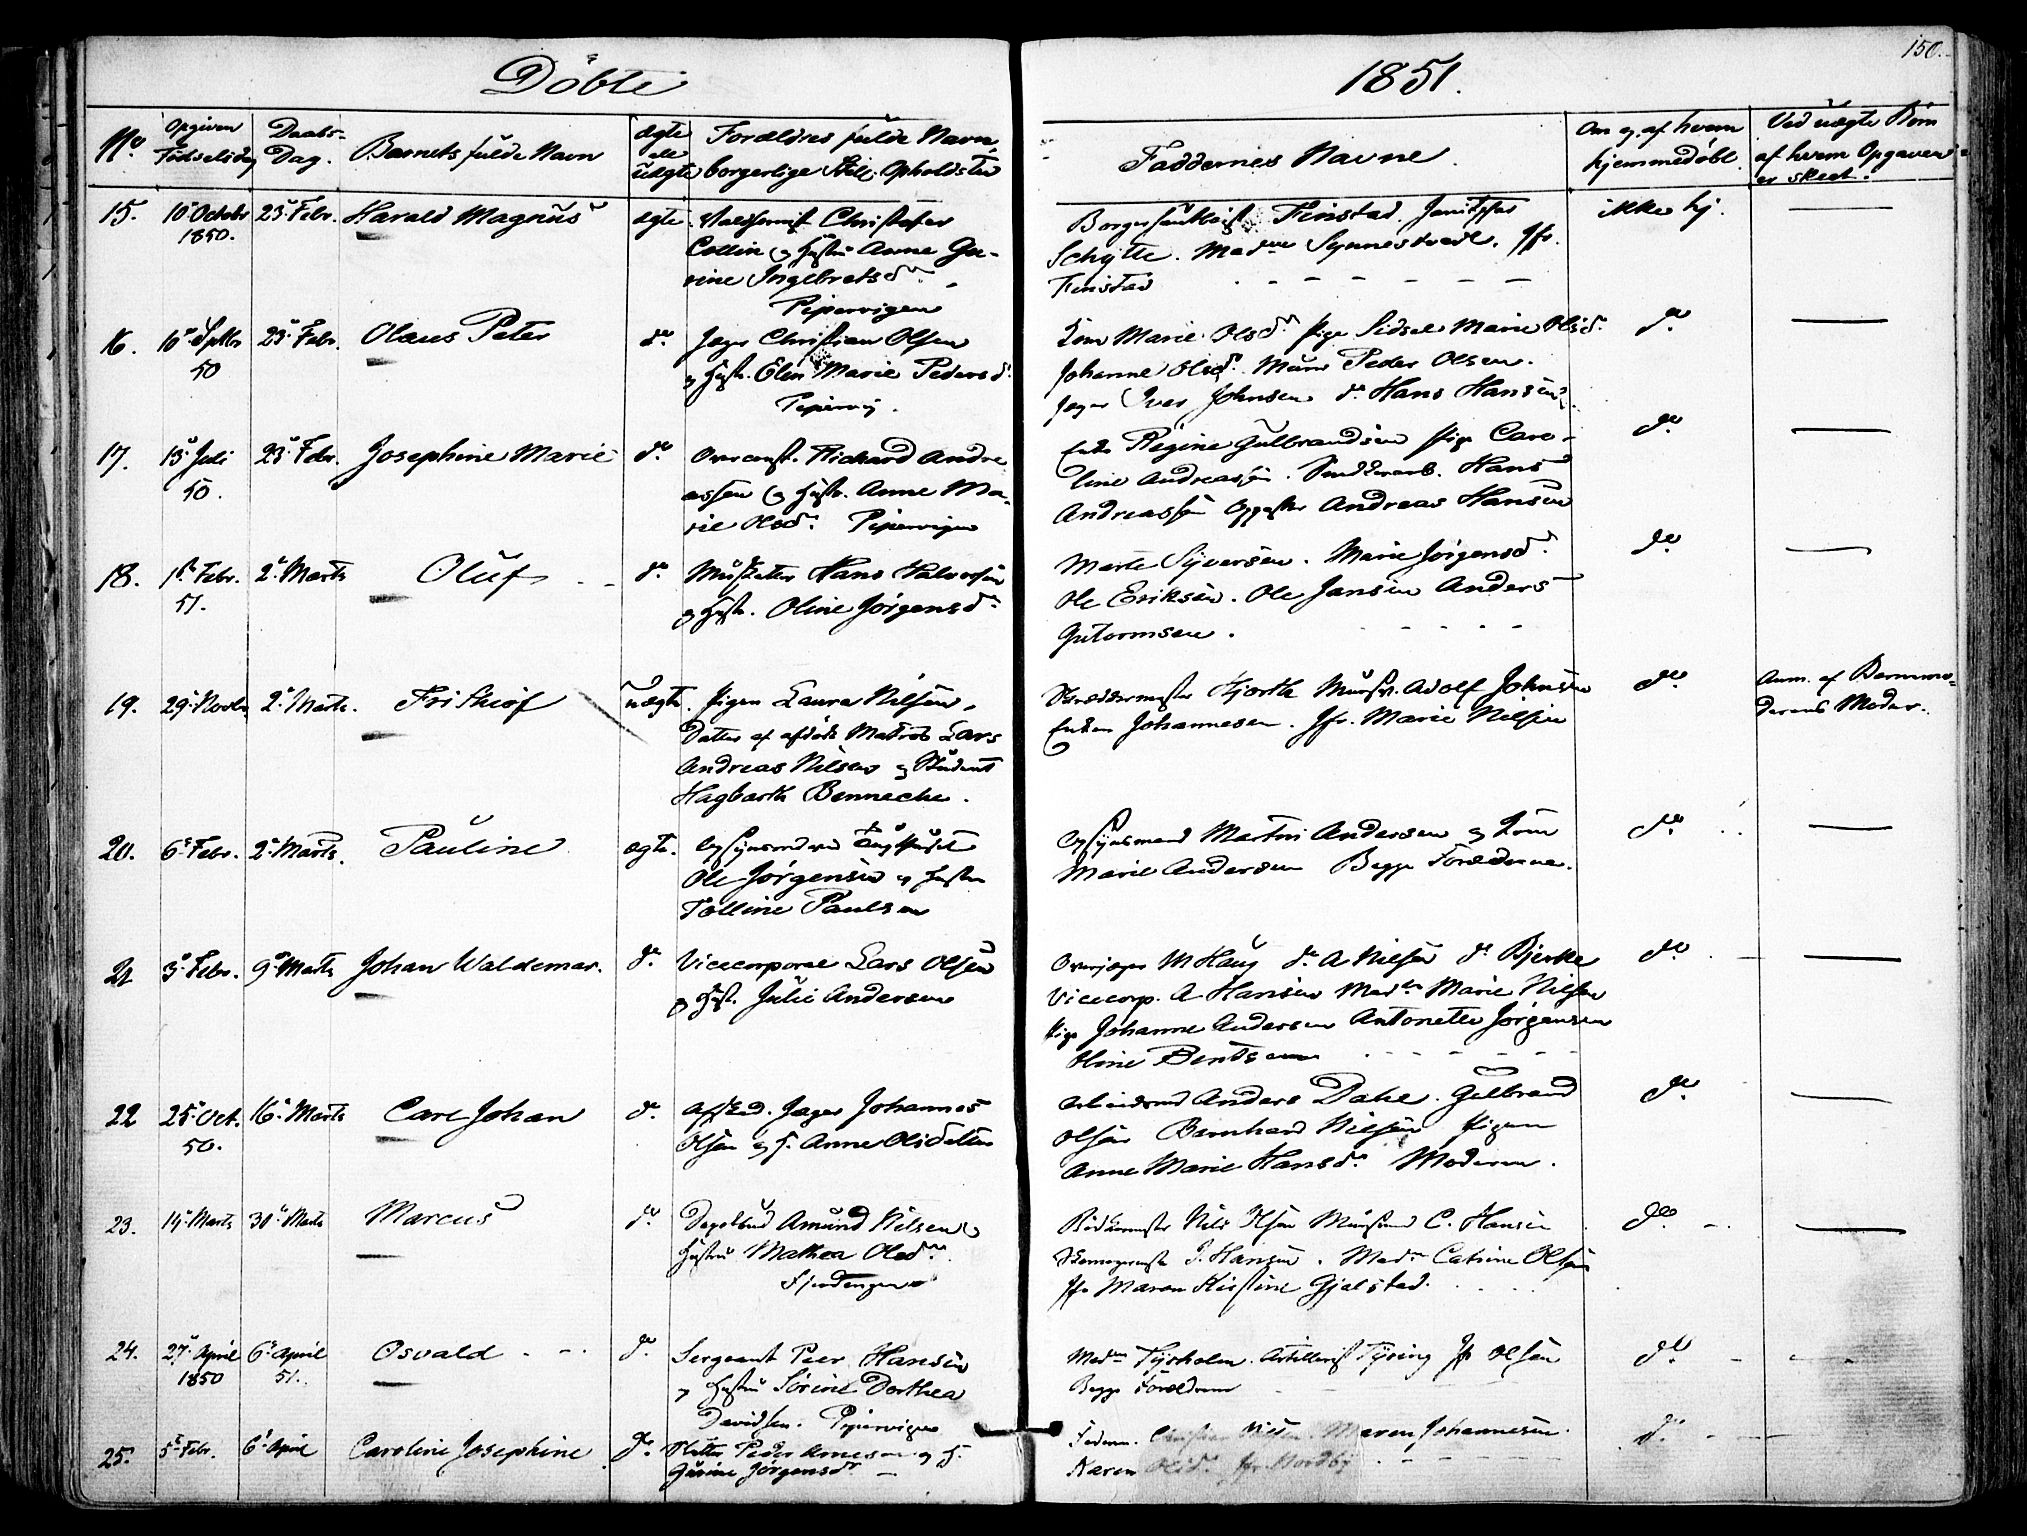 Döbte
1851.
150.
No
Opgiven Fødselsdag
Daabs-Dag.
Barnets fulde Navn
ægte ell uægte
Forældres fulde Navn, borgerlige Still. Opholdsted
Faddernes Navne.
Om og af hvem hjemmedøbt
Ved uægte Børn af hvem Opgaven er skeet.
15.
10 Octobr
1850.
23 Febr.
Harald Magnus
ægte
Christofer
Collin og Hustru Anne Gu-
rine Ingebretsd.
Pipervigen
Finstad.
Schytte. Mad. Synnestvedt. Jfr.
Finstad
ikke hj.
16.
10 Septbr
50
23 Febr.
Olaus Peter
do
Jæger Christian Olsen
og Hustr. Elen Marie Pedersd.
Piperv.
Kone Marie Olsd. Pige Sidsel Marie Olsd.
Johanne Olsd. Murer Peder Olsen.
Jæger Iver Johnsen do Hans Hansen
do
17.
13 Juli
50.
23 Febr.
Josephine Marie
do
Overconst. Richard Andre
assen og Hustr. Anne Ma-
rie Olsd. Pipervigen
Enke Regine Gulbrandsen Pige Caro-
line Andreassen. Hans
Andreassen Andreas Hansen
do
18.
1 Febr.
51.
2 Marts
Oluf
do
Musketer Hans Halvorsen
og Hustr. Oline Jørgensd.
Marte Syversen. Marie Jørgensd.
Ole Eriksen. Ole Jansen Anders
Gutormsen.
do
19.
29 Novbr
2 Marts.
Frithiof
uægte.
Pigen Laura Nilsen,
Datter af afdøde Matros Lars
Andreas Nilsen og Student
Hagbarth Benneche.
Skræddermester Hjorth Mursv. Adolf Johnsen
Enken Johannesen. Jfr. Marie Nilsen
do
Anm. af Barnemo-
derens Moder.
20.
6 Febr.
2 Marts.
Pauline
ægte.
Opsynsmd ved Tugthuset
Ole Jørgensen og Hustru
Tolline Paulsen
Opsynsmand Martin Andersen og Kone
Marie Andersen Begge Forældrene.
do
21
3 Febr.
9 Marts
Johan Waldemar.
do
Vicecorporal Lars Olsen
og Hust. Julie Andersen
Overjæger M Haug do A Nilsen do Bjerke
Vicecorp. A Hansen Mad. Marie Nilsen
Pige Johanne Andersen Antonette Jørgensen
Oline Bentsen
do
22
25 Oct.
50.
16 Marts
Carl Johan
do
Afsked. Jæger Johannes
Olsen og H. Anne Olsdatter
Arbeidsmd Anders Dahl. Gulbrand
Olsen Bernhard Nilsen Pigen
Anne Marie Hansd. Moderen.
do
23.
14 Marts
30 Marts
Marcus
do
Amund Nilsen
Hustru Mathea Olsd.
Fjerdingen
Nils Olsen C. Hansen
Skomagermst. P. Hansen. Mad. Catrine Olsen
Jfr Maren Kirstine Gjelstad.
do
24.
27 April
1850
6 April
51.
Osvald
do
Sergeant Peer Hansen
og Hustru Sørine Dorthea
Davidsen. Pipervigen
Mad. Tyrholm. Artillerist Tyring Jfr Olsen
Begge Forældrene
do
25.
5 Febr.
6 April
Caroline Josephine
do
Peder Arnesen og H.
Gurine Jørgensdr
Faderen. Christian Maren Johannesen.
Karen Olsd. Jfr Nordby
do